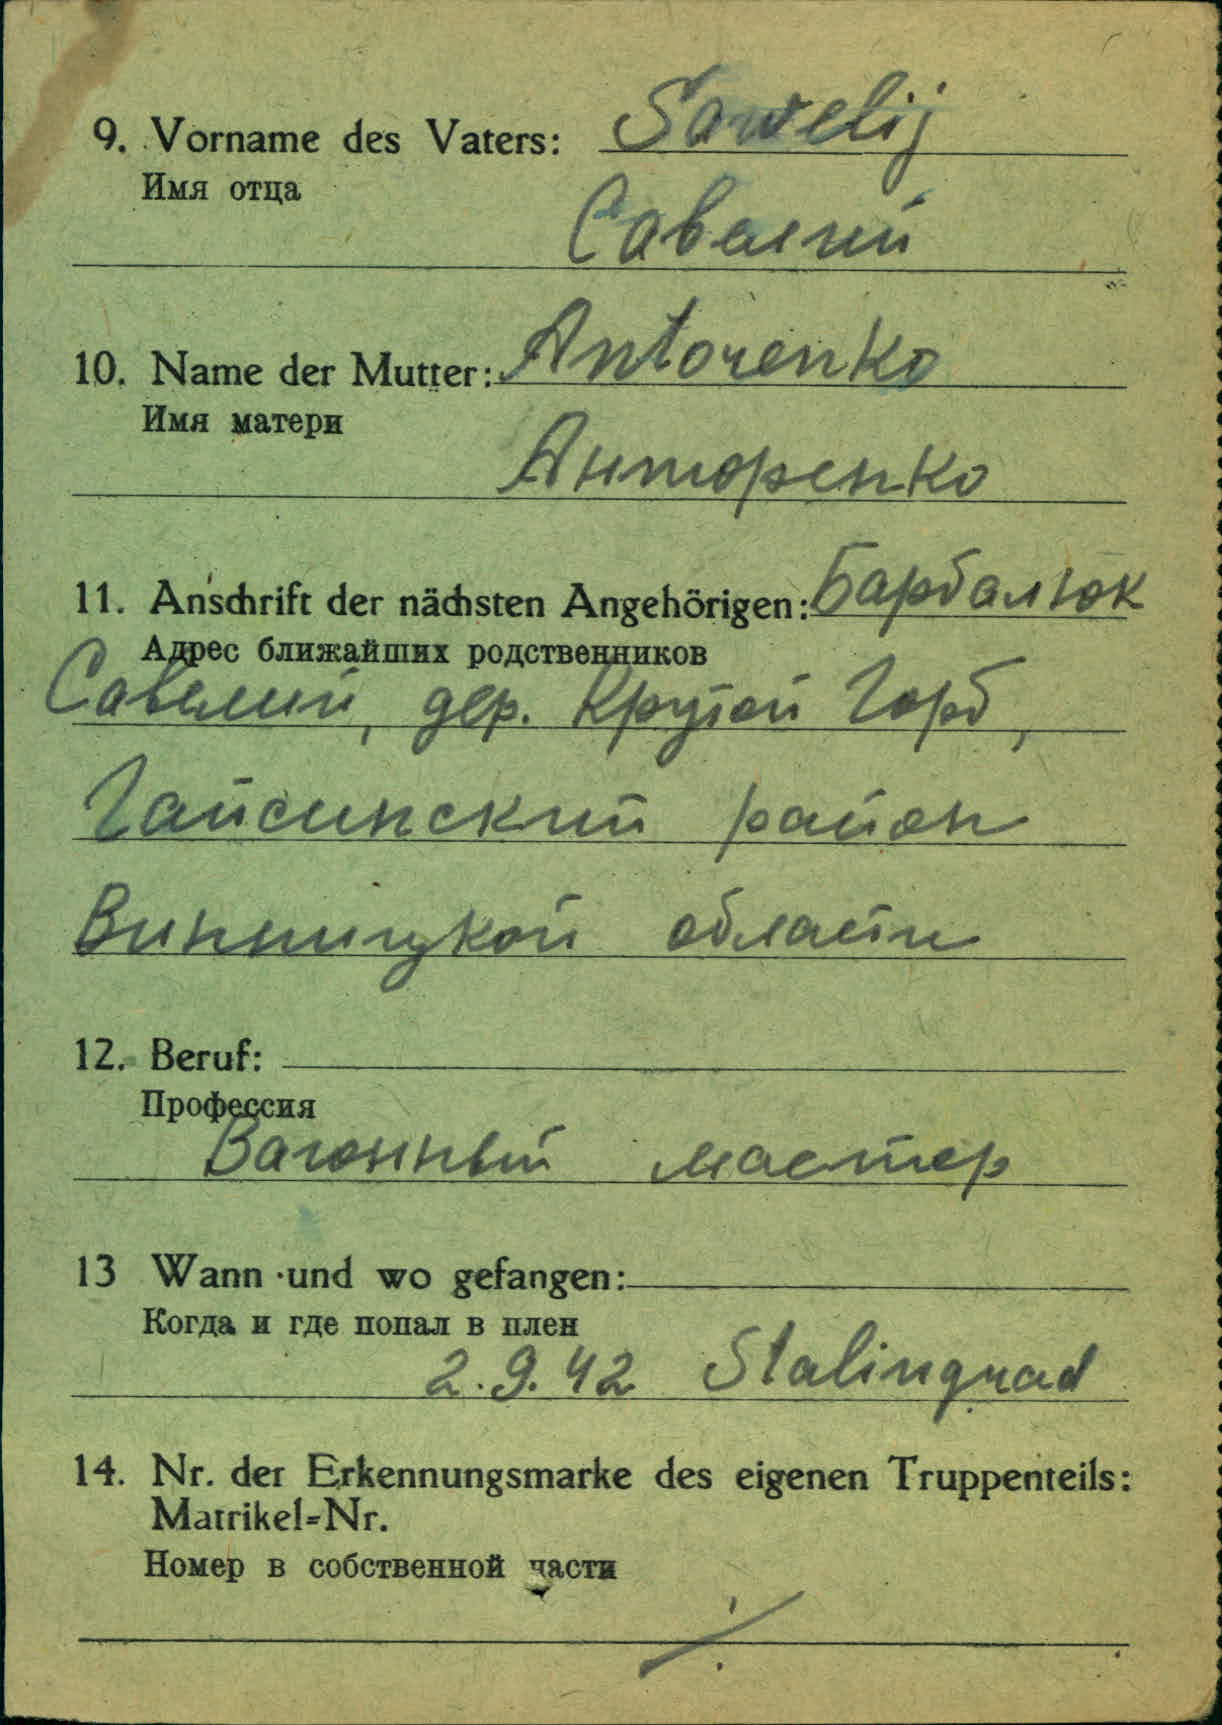 9. Vorname des Vaters: Sawelij
Имя отца
Савелий
10. Name der Mutter: Antorenko
Имя матери
Анторенко
11. Anschrift der nächsten Angehörigen: Барбалюк
Адрес ближайших родственников
Савелий, дер. Крутой Горб,
Гайсинский район
Винницкой области
12. Beruf:
Профессия
Вагонный мастер
13 Wann und wo gefangen:
Когда и где попал в плен
2.9.42 Stalingrad
14. Nr. der Erkennungsmarke des eigenen Truppenteils:
Matrikel=Nr.
Номер в собственной части